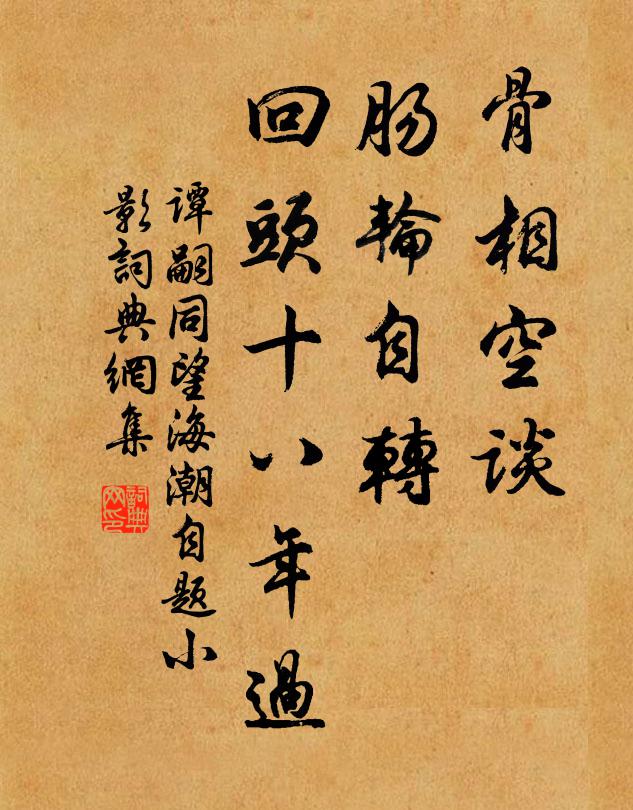 骨相空谈
肠輪自轉
回頭十八年過
谭嗣同望海潮自题小
影詞典網集
詞典
网印